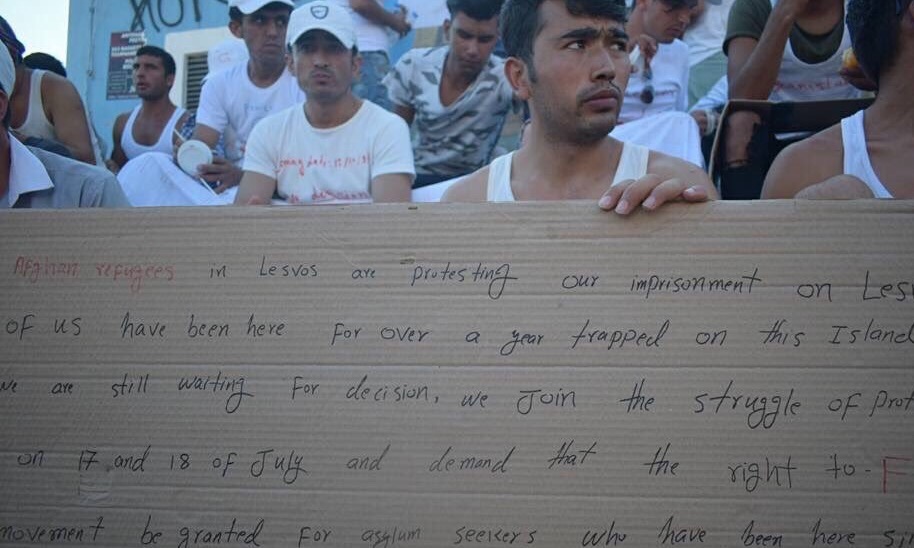 Afghan refugees in Lesvos are protesting our imprisonment on Les
of us have been here for over a year trapped on this Island
we are still waiting for decision, we Join the struggle of prot
on 17 and 18 of July and demand that the right to-F
movement be granted for asylum seekers who have been here si